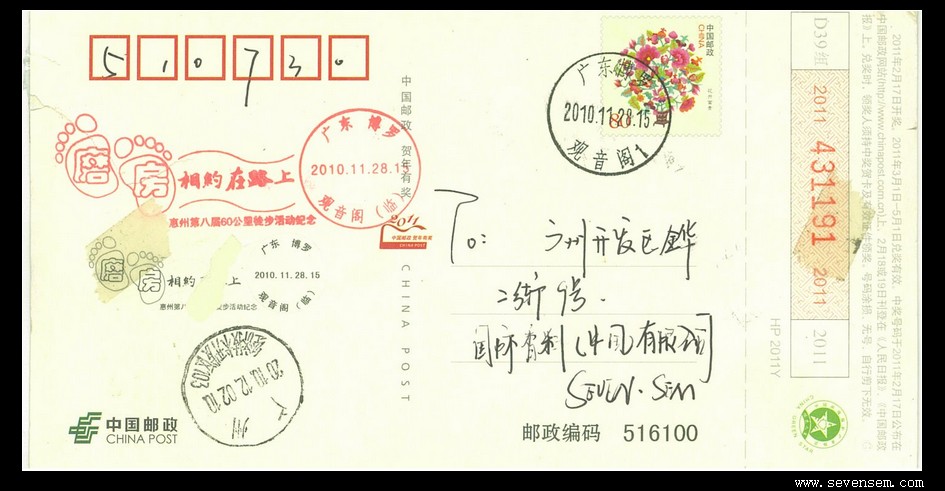 510730
中国邮政
CHINA
80
广东
2010.11.28.15
观音阁1
磨房
相约在路上
惠州第八届60公里徒步活动纪念
广东 博罗
2010.11.28.15
观音阁(临)
2011
中国邮政 贺年有奖
CHINA POST
磨房
相约 上
惠州第八 步活动纪念
广东 博罗
2010.11.28.15
观音阁(临)
中国邮政 贺年有奖
CHINA POST
To: 广州开发区
9号.
国际香料(中国)有限公司
SEVEN.SEM
广州
2010.12.02.10
703
中国邮政
CHINA POST
邮政编码 516100
D39组
2011 431191 2011
2011
HP 2011Y
2011年2月17日开奖。2011年3月1日-5月1日兑奖有效。中奖号码于2011年2月17日公布在
中国邮政网站(http://www.chinapost.com.cn)上、2月18或19日刊登在《人民日报》、《中国邮政
报》上。兑奖时,领奖人须持中奖贺卡及有效证件领奖,号码涂损,无号,自行剪下无效。
www.sevensem.com